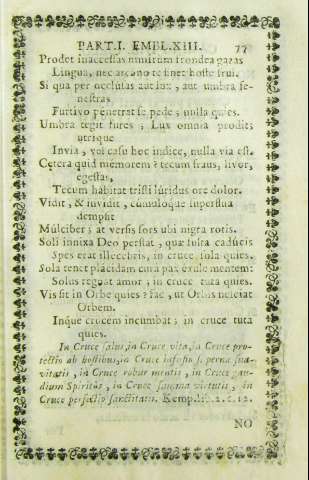 PART. I. EMBL. XIII. 77
Prodet inaccessas nimirum frondea gazas
Lingua, nec arcano te sinet hoste frui.
Si qua per occlusas aut lux, aut umbra fe-
nestras
Furtivo penetrat se pede; nulla quies.
Umbra tegit fures; Lux omnia prodit;
utrique
Invia, vel casu hoc indice, nulla via est.
Cętera quid memorem? tecum fraus, livor,
egestas,
Tecum habitat tristi luridus ore dolor.
Vidit, & invidit, cumuloque superflua
dempsit
Mulciber; at versis fors ubi nigra rotis.
Soli innixa Deo perstat, quæ fulta caducis
Spes erat illecebris, in cruce sola quies.
Sola tenet placidam cura pax exule mentem:
Solus regnat amor; in cruce tuta quies.
Vis sit in Orbe quies? fac, ut Orbis nesciat
Orbem.
Inque crucem incumbat; in cruce tuta
quies.
In Cruce salus, in Cruce vita, in Cruce pro-
tectio ab hostibus, in Cruce infusio s. pernæ sua-
vitatis, in Cruce robur mentis, in Cruce gau-
dium Spiritûs, in Cruce summa virtutis, in
Cruce perfectio sanctitatis. Kemp. li. 2. c. 12.
NO